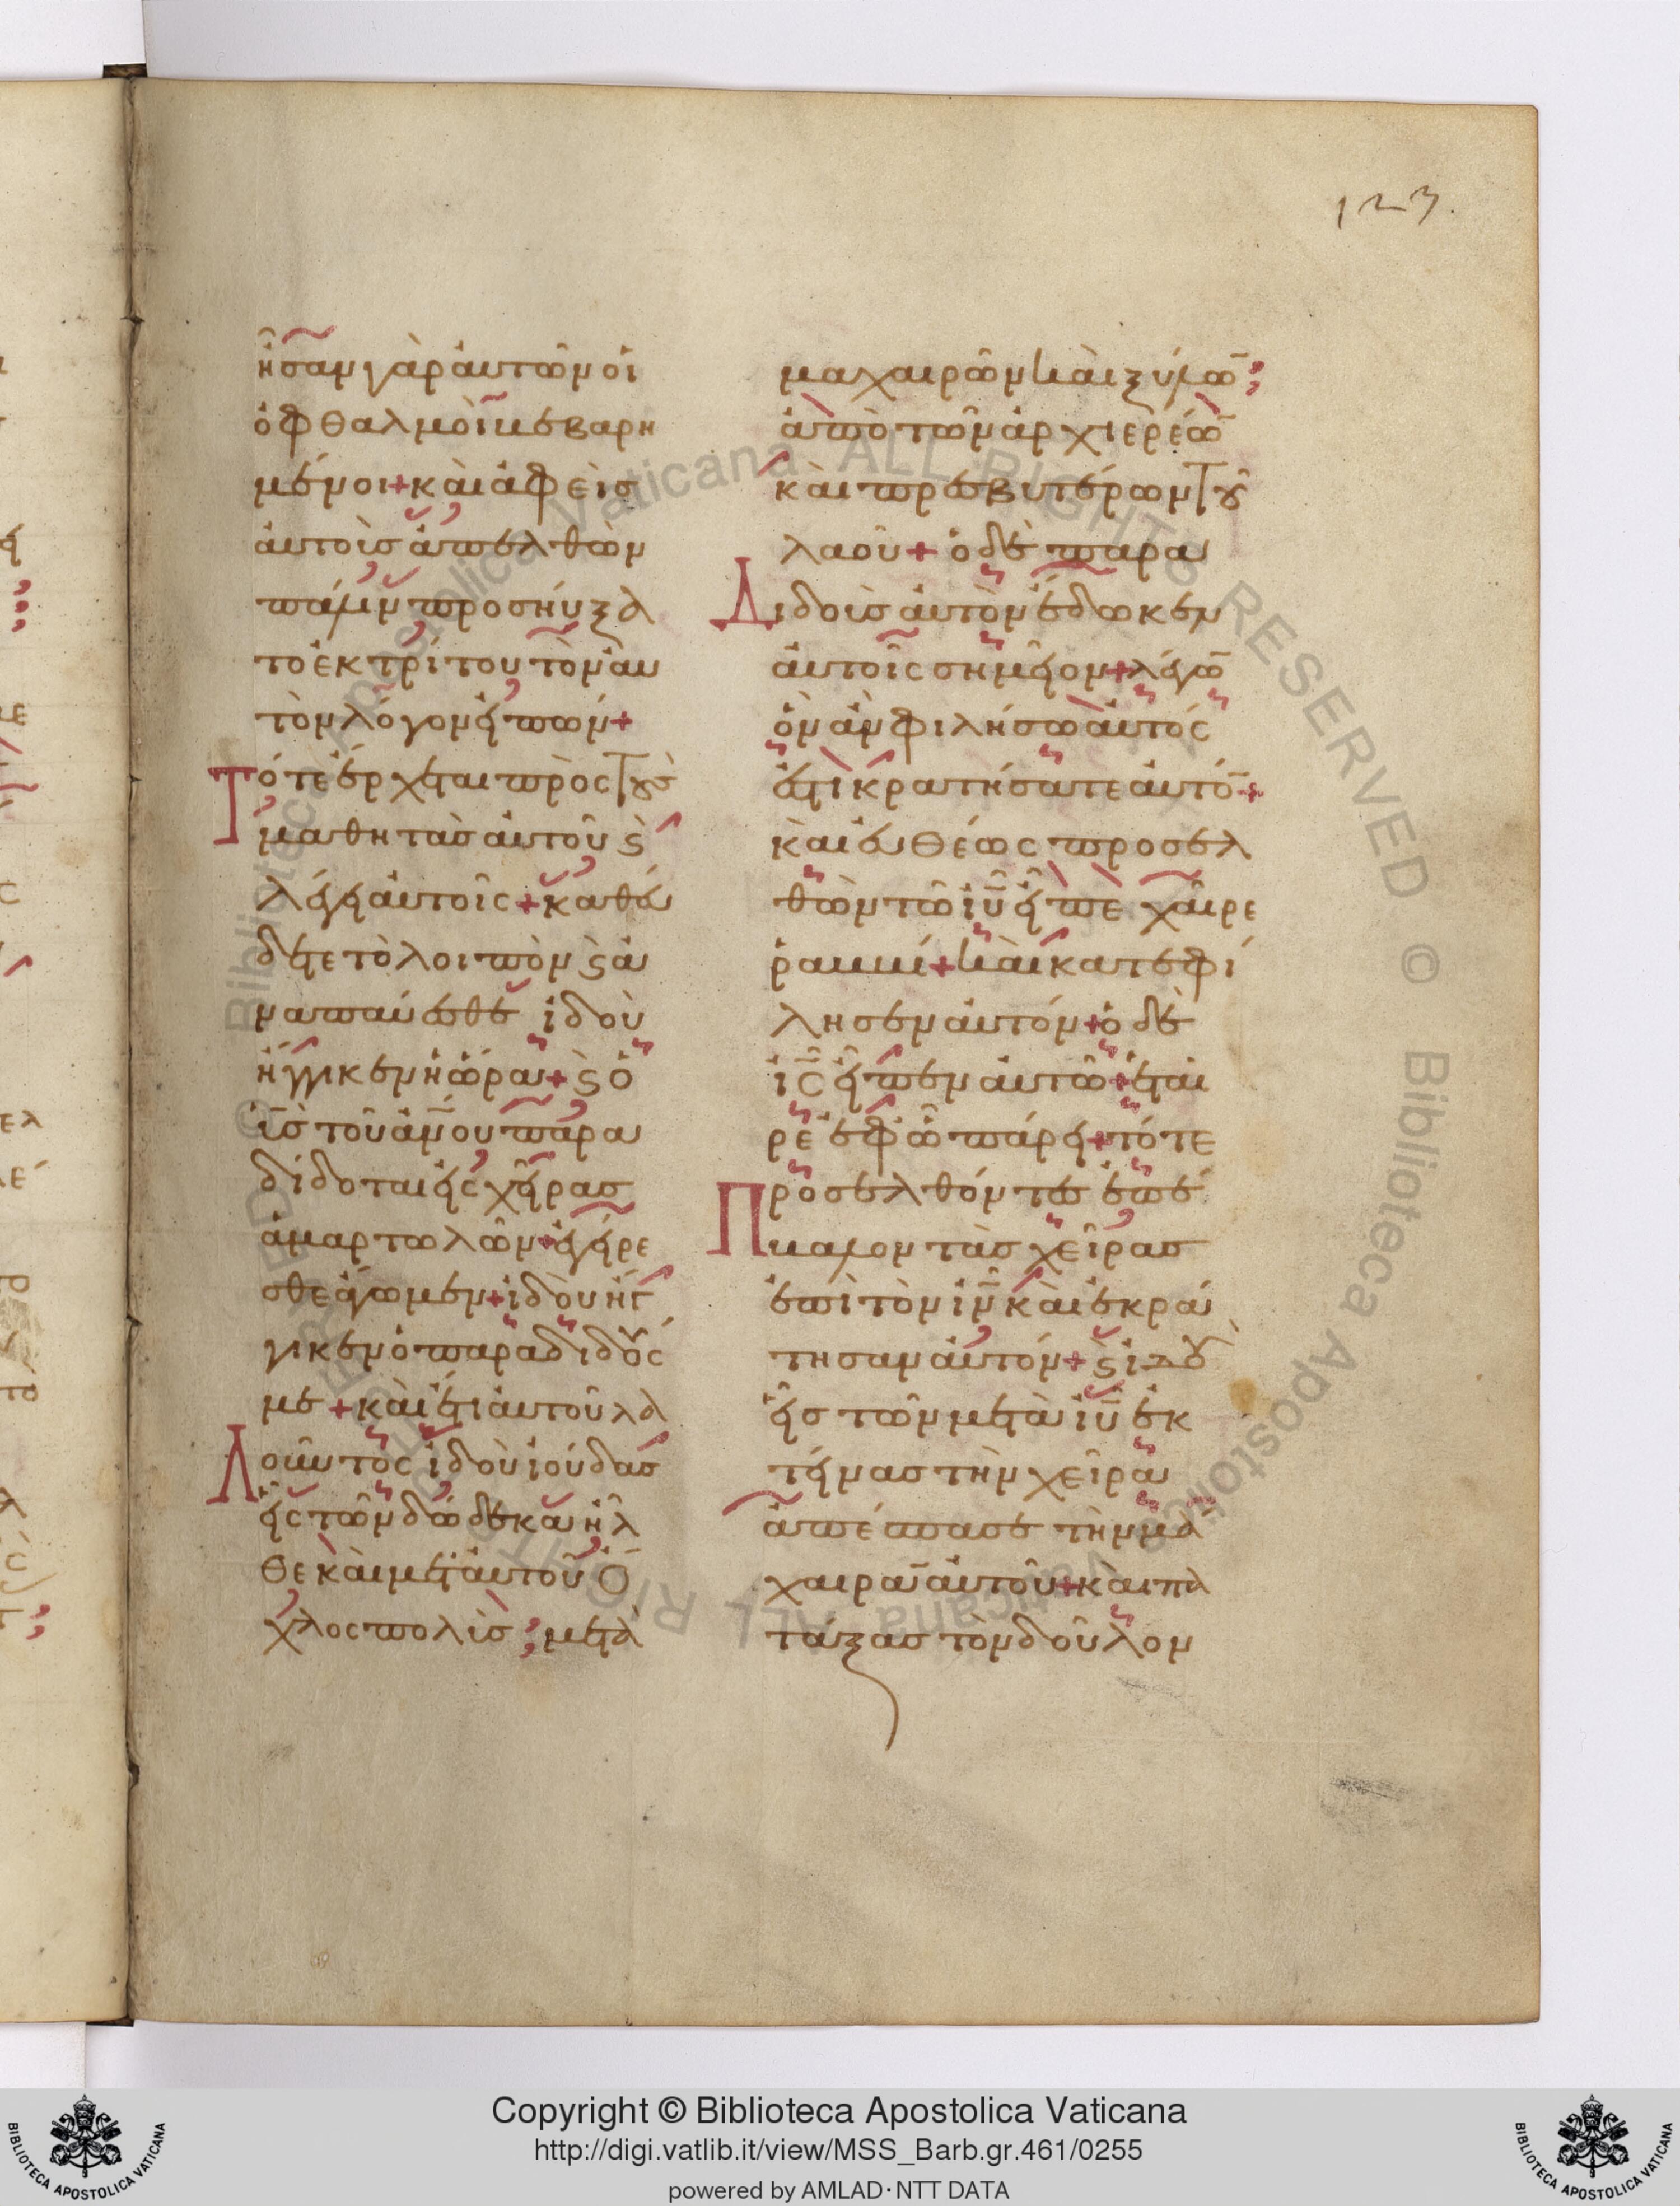 123.
ἦσαν γὰρ ἀυτῶν οἱ
ὀφθαλμοὶ βεβαρη
μένοι + κὰι ἀφεὶσ
ἀυτοὺσ ἀπελθὼν
πάλιν προσηύξα
το ἐκ τρίτου τὸν ἀυ
τὸν λόγον εἰπών +
Τότε ἔρχεται πρὸς τοὺσ
μαθητὰσ ἀυτοῦ ϛ̀
λέγει ἀυτοῖς + καθεύ
δετε τὸ λοιπὸν ϛ̀ ἀ
ναπαύεσθε ἰδοὺ
ἤγγικεν ἡ ὥρα + ϛ̀ ὁ
ὑ̅σ̅ τοῦ ἀν̅ου παρα
δίδοται εἰς χεῖρασ
ἁμαρτωλῶν + ἐγείρε
σθε ἄγωμεν + ἰδὸυ ἤγ
γικεν ὁ παραδιδούς
με + κὰι ἔτι ἀυτοῦ λα
Λοῦντος ἰδοὺ ἰούδασ
εἷς τῶν δώδεκα ἦλ
θε κὰι μετ' ἀυτοῦ ὄ
χλος πολὺσ ; μετὰ
μαχαιρῶν κὰι ξύλω̅ ;
ἀπὸ τῶν ἀρχιερέω̅
κὰι πρεσβυτέρων τοῦ
λαοῦ + ὁ δὲ παρα
Διδοὺσ ἀυτὸν ἔδωκεν
ἀυτοῖς σημεῖον + λέγω̅
ὃν ἂν φιλήσω ἀυτός
ἐστι κρατήσατε ἀυτό̅ +
κὰι ἐυθέως προσελ
θὼν τῶ ἰ̅υ̅ εἶπε χαῖρε
ῥαββί + κὰι κατεφί
λησεν ἀυτόν + ὁ δὲ
ἰ̅ς̅ εἶπεν ἀυτῶ + ἑται
ρε ἐφ' ὧ πάρει + τότε
Προσελθόντες ἐπέ
βαλον τὰσ χεῖρασ
ἐπὶ τὸν ἰ̅ν̅ κὰι ἐκρά
τησαν ἀυτόν + ϛ̀ ἰδοὺ
εἷσ τῶν μετὰ ἰ̅υ̅ ἐκ
τείνασ τὴν χεῖρα
ἀπέσπασε τὴν μά
χαιρα̅ ἀυτοῦ + κὰι πα
τάξασ τὸν δοῦλον
Copyright © Biblioteca Apostolica Vaticana
http://digi.vatlib.it/view/MSS_Barb.gr.461/0255
powered by AMLAD·NTT DATA
BIBLIOTECA APOSTOLICA VATICANA
BIBLIOTECA APOSTOLICA VATICANA
Biblioteca Apostolica Vaticana ALL RIGHTS RESERVED © Biblioteca Apostolica Vaticana ALL RIGHTS RESERVED ©